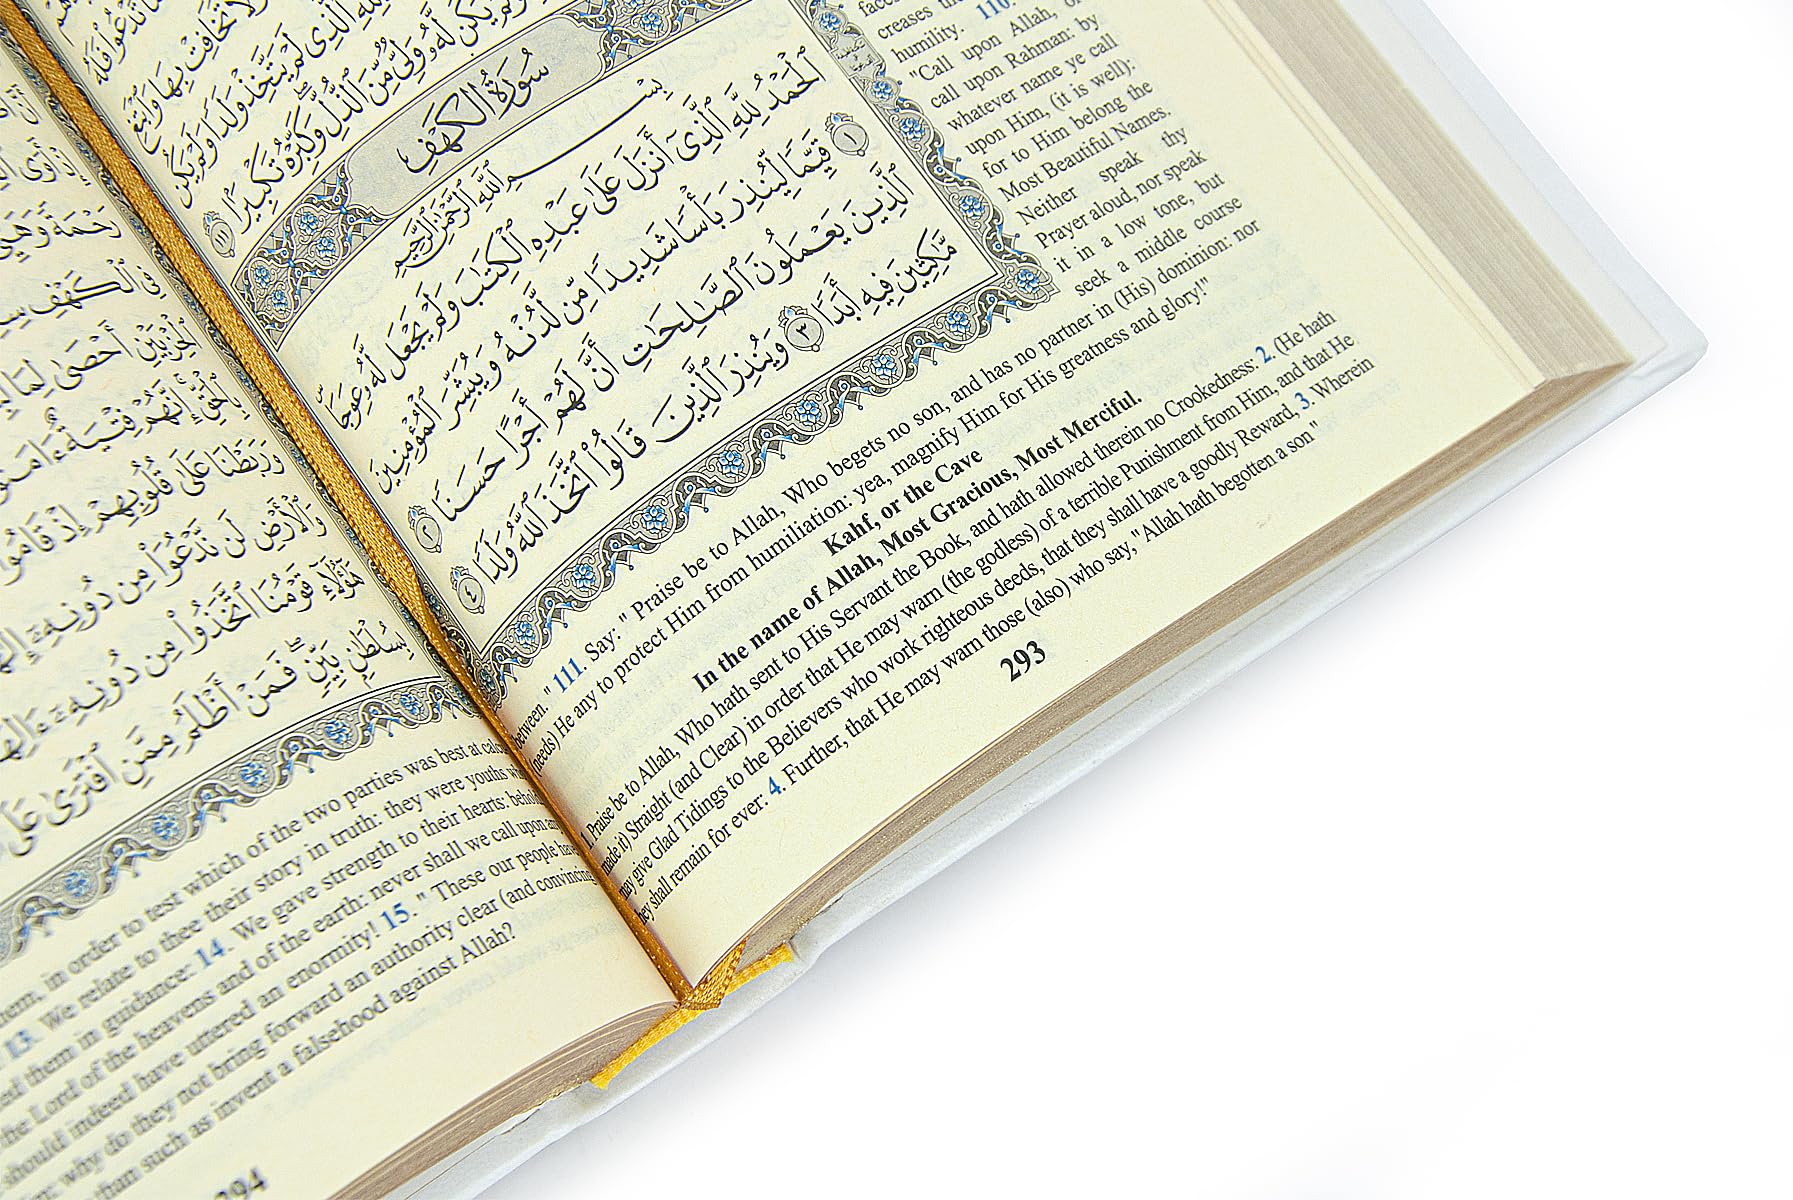 وَلَا تُخَافِتْ بِهَا وَٱبْتَغِ
ٱلَّذِى لَمْ يَتَّخِذْ وَلَدًا وَلَمْ يَكُن
يَكُن لَّهُۥ وَلِىٌّ مِّنَ ٱلذُّلِّ ۖ وَكَبِّرْهُ تَكْبِيرًۢا ١١١
سُورَةُ الكَهْفِ
بِسْمِ ٱللَّهِ ٱلرَّحْمَٰنِ ٱلرَّحِيمِ
ٱلْحَمْدُ لِلَّهِ ٱلَّذِىٓ أَنزَلَ عَلَىٰ عَبْدِهِ ٱلْكِتَٰبَ وَلَمْ يَجْعَل لَّهُۥ عِوَجَاۜ
١ قَيِّمًا لِّيُنذِرَ بَأْسًا شَدِيدًا مِّن لَّدُنْهُ وَيُبَشِّرَ ٱلْمُؤْمِنِينَ
ٱلَّذِينَ يَعْمَلُونَ ٱلصَّٰلِحَٰتِ أَنَّ لَهُمْ أَجْرًا حَسَنًا ٢
مَّٰكِثِينَ فِيهِ أَبَدًا ٣ وَيُنذِرَ ٱلَّذِينَ قَالُوا۟ ٱتَّخَذَ ٱللَّهُ وَلَدًا ٤
creases
humility. 110.
"Call upon Allah, or
call upon Rahman: by
whatever name ye call
upon Him, (it is well):
for to Him belong the
Most Beautiful Names.
Neither speak thy
Prayer aloud, nor speak
it in a low tone, but
seek a middle course
between." 111. Say: " Praise be to Allah, Who begets no son, and has no partner in (His) dominion: nor
(needs) He any to protect Him from humiliation: yea, magnify Him for His greatness and glory!"
Kahf, or the Cave
In the name of Allah, Most Gracious, Most Merciful.
1. Praise be to Allah, Who hath sent to His Servant the Book, and hath allowed therein no Crookedness: 2. (He hath
made it) Straight (and Clear) in order that He may warn (the godless) of a terrible Punishment from Him, and that He
may give Glad Tidings to the Believers who work righteous deeds, that they shall have a goodly Reward, 3. Wherein
they shall remain for ever: 4. Further, that He may warn those (also) who say, "Allah hath begotten a son"
293
رَحْمَةً وَهَيِّئْ
فِى ٱلْكَهْفِ
ٱلْحِزْبَيْنِ أَحْصَىٰ لِمَا
بِٱلْحَقِّ ۚ إِنَّهُمْ فِتْيَةٌ ءَامَنُوا۟
وَرَبَطْنَا عَلَىٰ قُلُوبِهِمْ إِذْ قَامُوا۟
وَٱلْأَرْضِ لَن نَّدْعُوَا۟ مِن دُونِهِۦٓ
هَٰٓؤُلَآءِ قَوْمُنَا ٱتَّخَذُوا۟ مِن دُونِهِۦٓ
بِسُلْطَٰنٍۭ بَيِّنٍ ۖ فَمَنْ أَظْلَمُ مِمَّنِ ٱفْتَرَىٰ عَلَى
them, in order to test which of the two parties was best at
13. We relate to thee their story in truth: they were youths
them in guidance: 14. We gave strength to their hearts: behold
the Lord of the heavens and of the earth: never shall we call upon
should indeed have uttered an enormity! 15. " These our people have
why do they not bring forward an authority clear (and convincing
than such as invent a falsehood against Allah?
294